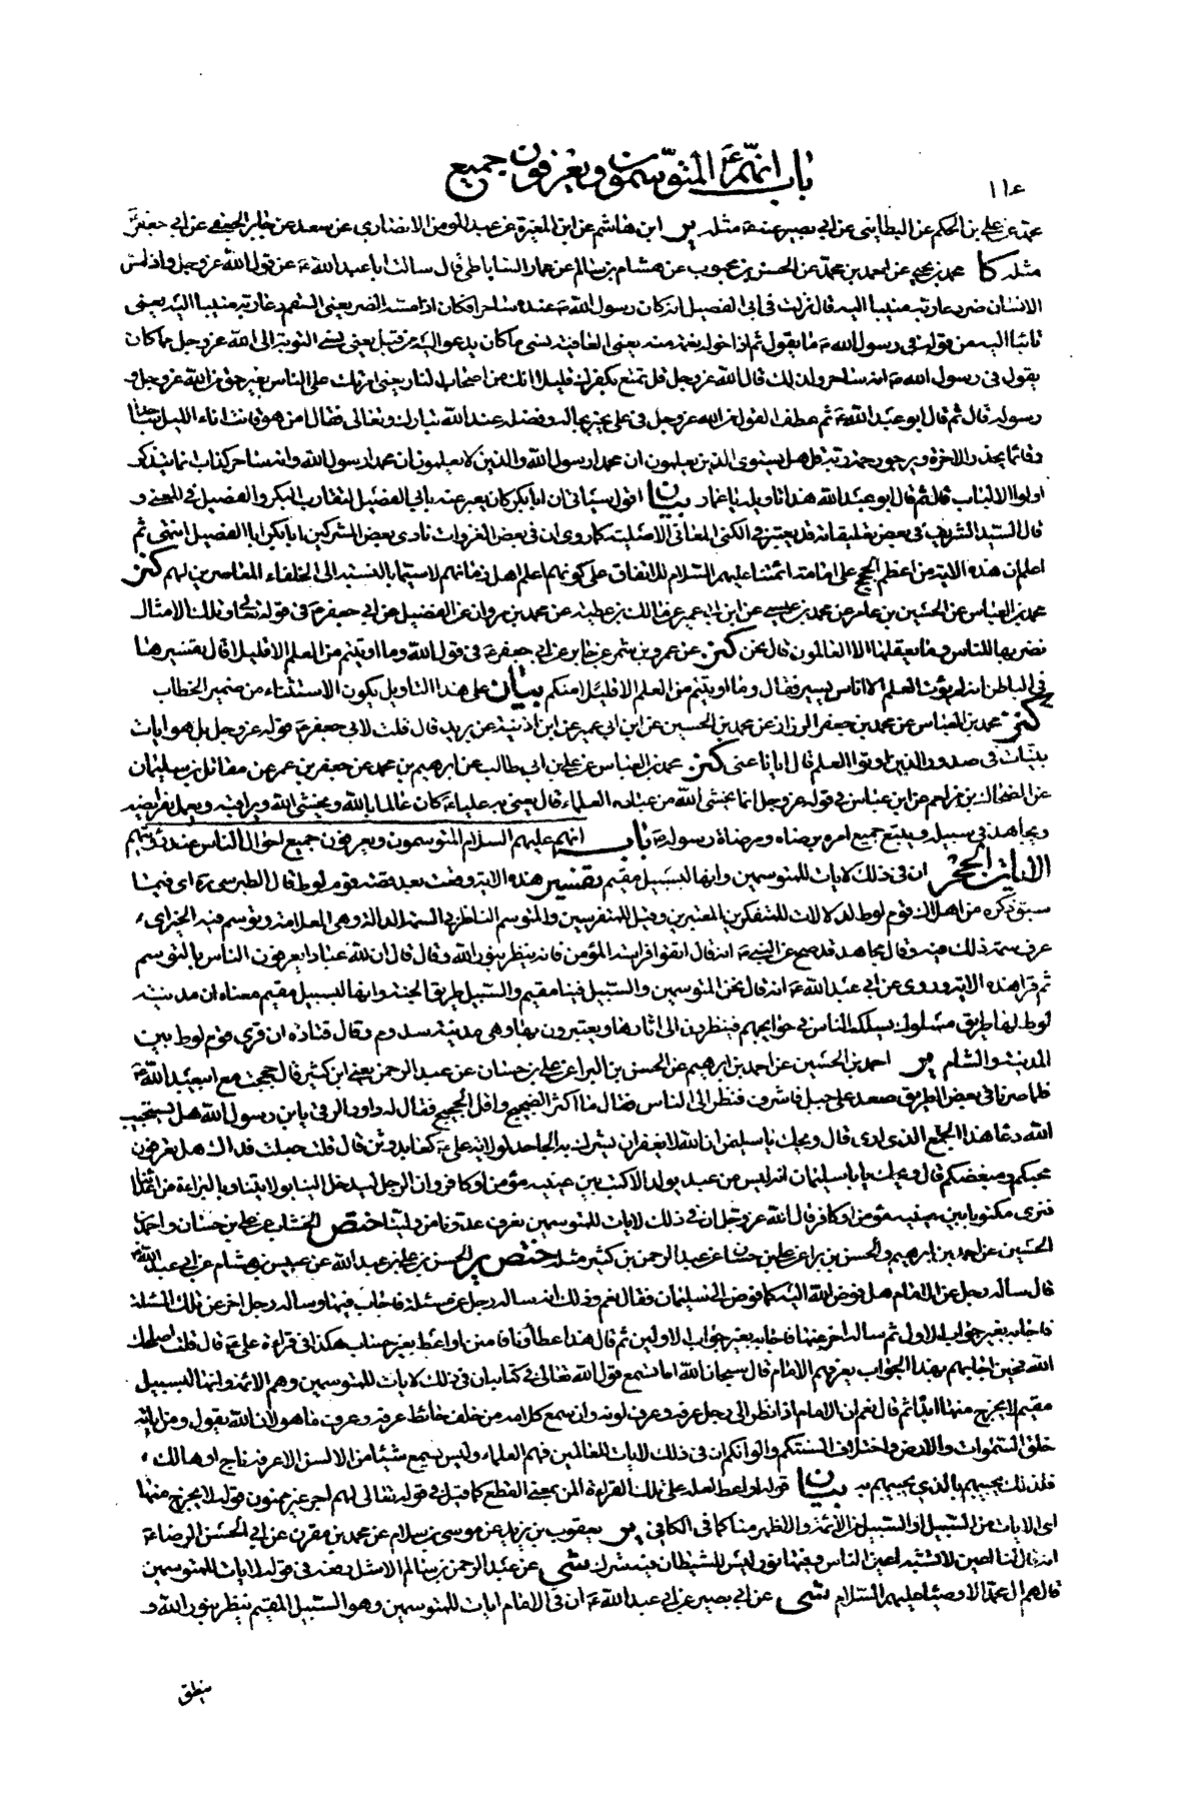 باب انهم ع المتوسمون ويعرفون جميع
١١٤
محمد عن علي بن الحكم عن البطايني عن ابي بصير عنه ع مثله ير ابن هاشم عن ابن المغيرة عن عبد المومن الانصاري عن سعد عن جابر الجعفي عن ابي جعفر ع
مثله كا محمد بن يحيى عن احمد بن محمد عن الحسن بن محبوب عن هشام بن سالم عن عمار الساباطي قال سالت ابا عبد الله ع عن قول الله عز وجل واذا مس
الانسان ضر دعا ربه منيبا اليه قال نزلت في ابي الفصيل انه كان رسول الله ص عنده ساحرا فكان اذا مسه الضر يعني السقم دعا ربه منيبا اليه يعني
تائبا اليه من قوله في رسول الله ص ما يقول ثم اذا خوله نعمة منه يعني العافية نسي ما كان يدعو اليه من قبل يعني نسي التوبة الى الله عز وجل مما كان
يقول في رسول الله ص انه ساحر ولذلك قال الله عز وجل قل تمتع بكفرك قليلا انك من اصحاب النار يعني امرتك على الناس بغير حق من الله عز وجل و
رسوله قال ثم قال ابو عبد الله ع ثم عطف القول من الله عز وجل في علي يخبر بحاله وفضله عند الله تبارك وتعالى فقال امن هو قانت اناء الليل ساجدا
وقائما يحذر الاخرة ويرجو رحمة ربه قل هل يستوي الذين يعلمون ان محمدا رسول الله والذين لا يعلمون ان محمدا رسول الله وانه ساحر كذاب انما يتذكر
اولوا الالباب قال ثم قال ابو عبد الله هذا تاويله يا عمار بيان اقول سياتي ان ابا بكر كان يعبر عنه بابي الفصيل لتقارب البكر والفصيل في المعنى و
قال السيد الشريف في بعض تعليقاته قد يعتبر في الكنى المعاني الاصلية كما روي ان في بعض الغزوات نادى بعض المشركين ابا بكر ابا الفصيل انتهى ثم
اعلم ان هذه الاية من اعظم الحجج على امامة ائمتنا عليهم السلام للاتفاق على كونهم اعلم اهل زمانهم لا سيما بالنسبة الى الخلفاء المعاصرين لهم كنز
محمد بن العباس عن الحسين بن عامر عن محمد بن عيسى عن ابن ابي عمير عن مالك بن عطية عن محمد بن مروان عن الفضيل عن ابي جعفر ع في قوله تعالى وتلك الامثال
نضربها للناس وما يعقلها الا العالمون قال نحن كنز عن عمرو بن شمر عن جابر عن ابي جعفر ع في قول الله وما اوتيتم من العلم الا قليلا قال تفسيرها
في الباطن انه لم يؤت العلم الا اناس يسير فقال وما اوتيتم من العلم الا قليلا منكم بيان على هذا التاويل يكون الاستثناء من ضمير الخطاب
كنز محمد بن العباس عن محمد بن جعفر الرزاز عن محمد بن الحسين عن ابن ابي عمير عن ابن اذنية عن بريد قال قلت لابي جعفر ع قوله عز وجل بل هو ايات
بينات في صدور الذين اوتوا العلم قال ايانا عنى كنز محمد بن العباس عن علي بن ابي طالب عن ابرهيم بن محمد عن جعفر بن عمر عن مقاتل بن سليمان
عن الضحاك بن مزاحم عن ابن عباس في قوله عز وجل انما يخشى الله من عباده العلماء قال يعني به عليا ع كان عالما بالله ويخشى الله ويراقبه ويعمل بفرايضه
ويجاهد في سبيله ويتبع جميع امره برضاه ومرضاة رسوله ص باب انهم عليهم السلام المتوسمون ويعرفون جميع احوال الناس عند رؤيتهم
الايات الحجر ان في ذلك لايات للمتوسمين وانها لبسبيل مقيم تفسير هذه الاية وقعت بعد قصة قوم لوط قال الطبرسي ره اي فيما
سبق ذكره من اهلاك قوم لوط لدلالات للمتفكرين المعتبرين وقيل للمتفرسين والمتوسم الناظر في السمة الدالة وهي العلامة وتوسم فيه الخير اي
عرف سمة ذلك فيه وقال مجاهد قد صح عن النبي ص انه قال اتقوا فراسة المؤمن فانه ينظر بنور الله وقال قال ان لله عبادا يعرفون الناس بالتوسم
ثم قرا هذه الاية وروي عن ابي عبد الله ع انه قال نحن المتوسمين والسبيل فينا مقيم والسبيل طريق الجنة وانها لبسبيل مقيم معناه ان مدينة
لوط لها طريق مسلوك يسلكه الناس في حوايجهم فينظرون الى اثارها ويعتبرون بها وهي مدينة سدوم وقال قتادة ان قرى قوم لوط بين
المدينة والشام ير احمد بن الحسين عن احمد بن ابرهيم عن الحسن بن البراء عن علي بن حسان عن عبد الرحمن يعني ابن كثير قال حججت مع ابي عبد الله ع
فلما صرنا في بعض الطريق صعد على جبل فاشرف فنظر الى الناس فقال ما اكثر الضجيج واقل الحجيج فقال له داود الرقي يا بن رسول الله هل يستجيب
الله دعاء هذا الجمع الذي ارى قال ويحك يا با سليمان ان الله لا يغفر ان يشرك به الجاحد لولاية علي ع كعابد وثن قال قلت جعلت فداك هل تعرفون
محبكم ومبغضكم قال ويحك يا با سليمان انه ليس من عبد يولد الا كتب بين عينيه مؤمن او كافر وان الرجل ليدخل الينا بولايتنا وبالبراءة من اعدائنا
فنرى مكتوبا بين عينيه مؤمن او كافر قال الله عز وجل ان في ذلك لايات للمتوسمين نعرف عدونا من ولينا ختص الخشاب عن علي بن حسان واحمد بن
الحسين عن احمد بن ابرهيم والحسن بن براء عن علي بن حسان عن عبد الرحمن بن كثير مثله ختص ير الحسن بن علي بن عبد الله عن عبيس بن هشام عن ابي عبد الله ع
قال ساله رجل عن الامام هل فوض الله اليه كما فوض الى سليمان فقال نعم وذلك انه ساله رجل عن مسئلة فاجاب فيها وساله رجل اخر عن تلك المسئلة
فاجابه بغير جواب الاول ثم ساله اخر عنها فاجابه بغير جواب الاولين ثم قال هذا عطاؤنا فامنن او اعط بغير حساب هكذا في قراءة علي ع قال قلت اصلحك
الله فحين اجابهم بهذا الجواب يعرفهم الامام قال سبحان الله اما تسمع قول الله تعالى في كتابه ان في ذلك لايات للمتوسمين وهم الائمة وانها لبسبيل
مقيم لا يخرج منها ابدا ثم قال نعم ان الامام اذا نظر الى رجل عرفه وعرف لونه وان سمع كلامه من خلف حائط عرفه وعرف ما هو لان الله يقول ومن اياته
خلق السموات والارض واختلاف السنتكم والوانكم ان في ذلك لايات للعالمين فهم العلماء وليس يسمع شيئا من الالسن الا عرفه ناج او هالك
فلذلك يجيبهم بالذي يجيبهم به بيان قوله او اعط لعله على تلك القراءة المن بمعنى القطع كما قيل في قوله تعالى لهم اجر غير ممنون قوله لا يخرج منها
اي الايات من السبيل او السبيل من الائمة والاظهر منا كما في الكافي ير يعقوب بن يزيد عن موسى بن سلام عن محمد بن مقرن عن ابي الحسن الرضا ع
انه قال لنا اعين لا تشبه اعين الناس وفيها نور ليس للشيطان فيه شرك شى عن عبد الرحمن بن سالم الاشل رفعه في قوله لايات للمتوسمين
قال هم ال محمد الاوصياء عليهم السلام شى عن ابي بصير عن ابي عبد الله ع ان في الامام ايات للمتوسمين وهو السبيل المقيم ينظر بنور الله و
ينطق